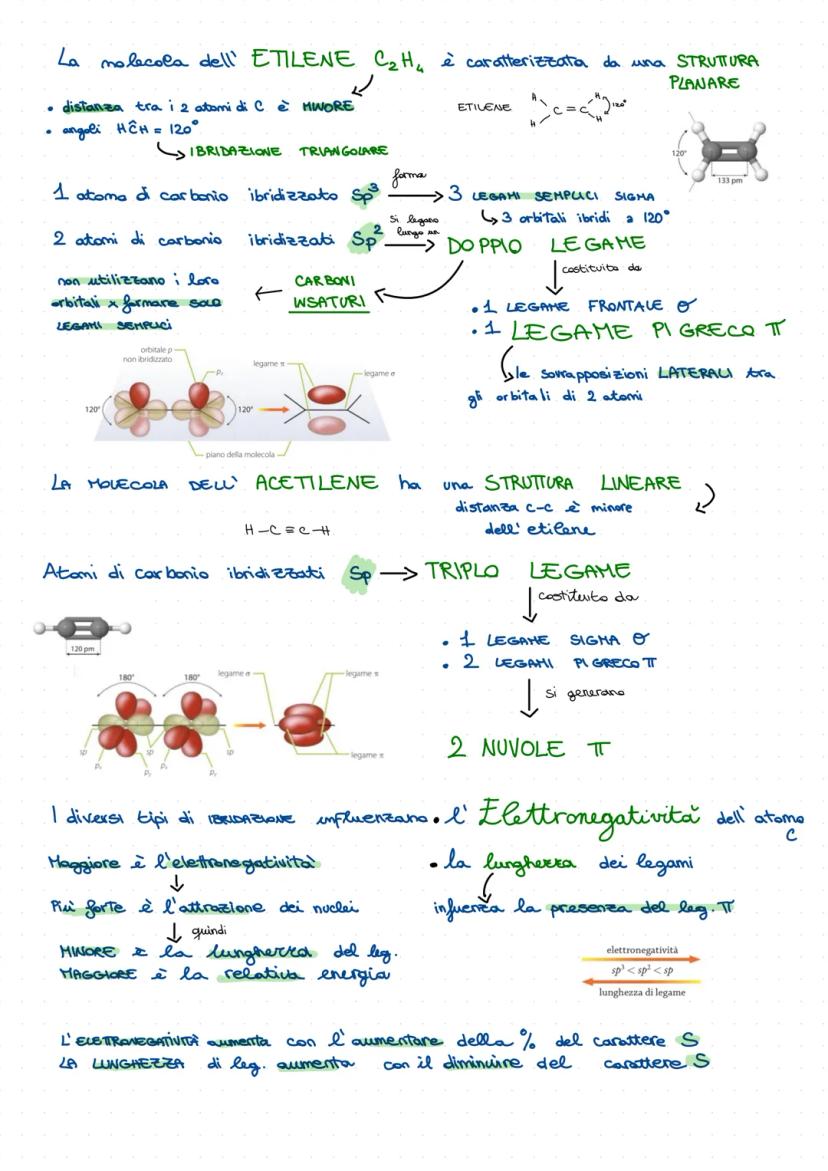 La molecola dell' ETILENE C₂H₄ è caratterizzata da una STRUTTURA
PLANARE
• distanza tra i 2 atomi di C è MINORE
• angoli HĈH = 120°
IBRIDAZIONE TRIANGOLARE
ETILENE
H
H
C = C
H
H
120°
120°
133 pm
1 atomo di carbonio ibridizzato Sp³ forma 3 LEGAMI SEMPLICI SIGMA
3 orbitali ibridi a 120°
2 atomi di carbonio ibridizzati Sp² si legano lungo un DOPPIO LEGAME
costituito da
non utilizzano i loro
orbitali x formare solo
LEGAMI SEMPLICI
CARBONI
INSATURI
• 1 LEGAME FRONTALE σ
• 1 LEGAME PI GRECO π
le sovrapposizioni LATERALI tra
gli orbitali di 2 atomi
orbitale p
non ibridizzato
legame π
legame σ
120°
120°
piano della molecola
LA MOLECOLA DELL' ACETILENE ha una STRUTTURA LINEARE
distanza C-C è minore
dell'etilene
H - C ≡ C - H
Atomi di carbonio ibridizzati Sp → TRIPLO LEGAME
costituito da
120 pm
• 1 LEGAME SIGMA σ
• 2 LEGAMI PI GRECO π
si generano
2 NUVOLE π
180°
180°
legame σ
legame π
sp
sp
sp
legame π
I diversi tipi di IBRIDAZIONE influenzano • l' Elettronegatività dell'atomo
C
Maggiore è l'elettronegatività
• la lunghezza dei legami
Più forte è l'attrazione dei nuclei
infuenza la presenza del leg. π
quindi
MINORE è la lunghezza del leg.
MAGGIORE è la relativa energia
elettronegatività
sp³ < sp² < sp
lunghezza di legame
L'ELETTRONEGATIVITÀ aumenta con l'aumentare della % del carattere S
LA LUNGHEZZA di leg. aumenta con il diminuire del carattere S